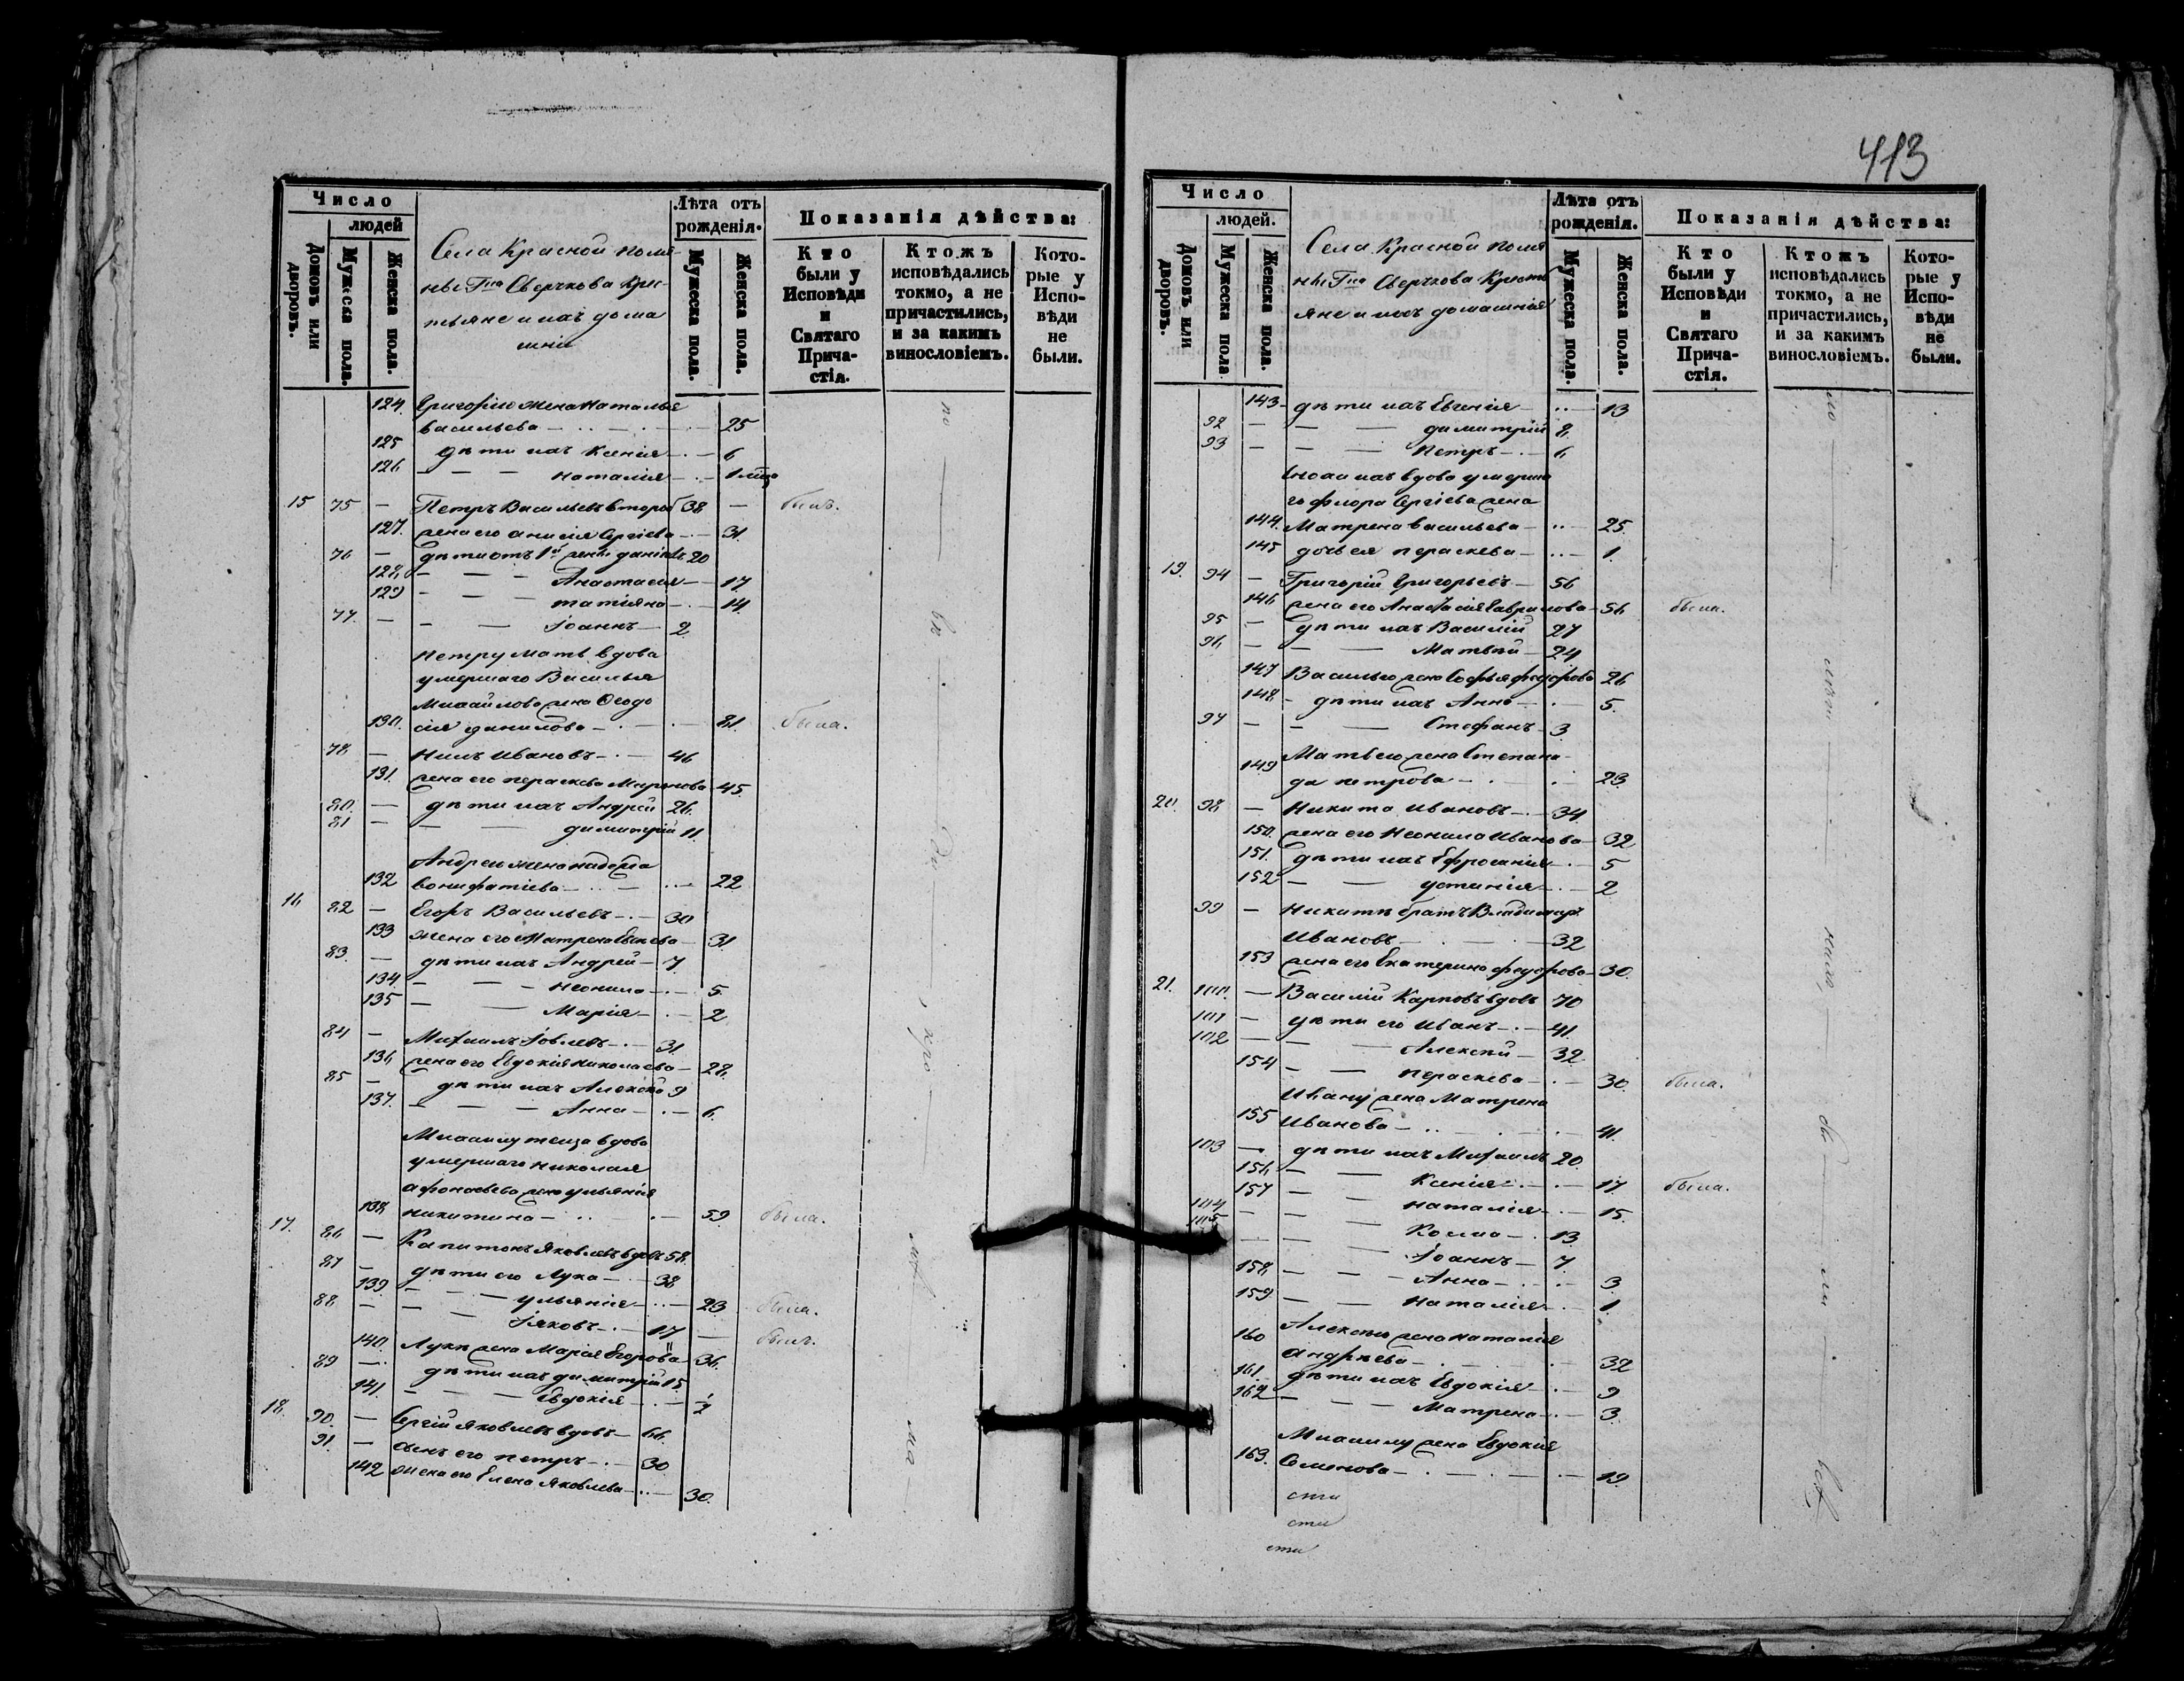 413
Число
людей
Домовъ или дворовъ.
Мужеска пола.
Женска пола.
Села Красной поля-
ны Г на Сверчкова Крес-
тьяне и ихъ дома
шніе
Лѣта отъ рожденія.
Мужеска пола.
Женска пола.
Показанія дѣйства:
Кто были у Исповѣди и Святаго Прича-стія.
Ктожъ исповѣдались токмо, а не причастились, и за какимъ винословіемъ.
Кото-рые у Испо-вѣди не были.
124. Григорію жена Наталья
Васильева 25
125 дѣти ихъ Ксенія 6
126 Наталія
15 75 Петръ Васильевъ второб 38 былъ.
127. жена его Анисія Сергіева 31.
76 дѣти отъ 1й жены Даніилъ 20
128. Анастасія 17.
129 Татіяна 14.
77. Іоаннъ 2
Петру мать вдова
умершаго Василья
Михайлова жена Ѳеодо
130. сія Данилова 81. была.
78. Нилъ Ивановъ 46
131. жена его Параскева Миронова 45.
80. дѣти ихъ Андрей 26.
81 Димитрій 11
Андрею жена Надежда
132 Вонифатіева 22
16 82 Егоръ Васильевъ 30
133 жена его Матрена 31.
83. дѣти ихъ Андрей 7.
134. Неонила 5.
135 Марія 2
84 Михаилъ Іовлевъ 31.
136. жена его Евдокія Николаева 28.
85 дѣти ихъ Алексѣй 9
137. Анна 6.
Михаилу теща вдова
умершаго Николая
Афонасьева жена Ульянія
138. Никитина 59. была.
17. 86 Капитонъ Яковлевъ вдовъ 58.
87 дѣти его Лука 38
139 Ульянія 23 была.
88 Іяковъ 17 былъ.
140. Лукѣ жена Марія Егорова 36.
89 дѣти ихъ Димитрій 15
141. Евдокія
18. 90. Сергій Яковлевъ вдовъ 66.
91. сынъ его Петръ 30
142 жена его Елена Яковлева 30.
Число
людей.
Домовъ или дворовъ.
Мужеска пола.
Женска пола.
Села Красной поля
ны Г на Сверчкова Кресть
яне и ихъ домашніе
Лѣта отъ рожденія.
Мужеска пола.
Женска пола.
Показанія дѣйства:
Кто были у Исповѣди и Святаго Прича-стія.
Ктожъ исповѣдались токмо, а не причастились, и за какимъ винословіемъ.
Кото-рые у Испо-вѣди не были.
143. дѣти ихъ Евгенія 13
92 Димитрій 8.
93 Петръ 6.
Сноха ихъ вдова умерша
го Флора Сергіева жена
144. Матрена Васильева 25.
145 дочь ея Параскева 1.
19. 94 Григорій Григорьевъ 56
146 жена его Анастасія Гаврилова 56 была.
95 дѣти ихъ Василій 27
96 Матвѣй 24
147 Василью жена Софья Федорова 26
148. дѣти ихъ Анна 5.
97 Стефанъ 3
Матвею жена Степани
149 да Петрова 23.
20. 98. Никита Ивановъ 34
150. жена его Неонила Иванова 32
151. дѣти ихъ Ефросинія 5
152 Устинія 2
99 Никитѣ братъ Владимиръ
Ивановъ 32
153 жена его Екатерина Федорова 30.
21. 100. Василій Карповъ вдовъ 70
101 дѣти его Иванъ 41.
102 Алексѣй 32
154 Параскева 30. была.
Ивану жена Матрена
155 Иванова 41.
103 дѣти ихъ Михаилъ 20.
156 Ксенія 17. была.
157 Наталія 15.
104 Косма 13
105 Іоаннъ 7
158. Анна 3
159. Наталія 1.
Алексѣю жена Наталія
160 Андрѣева 32
161 дѣти ихъ Евдокія 9
162 Матрена 3
Михаилу жена Евдокія
163. Семенова 19.